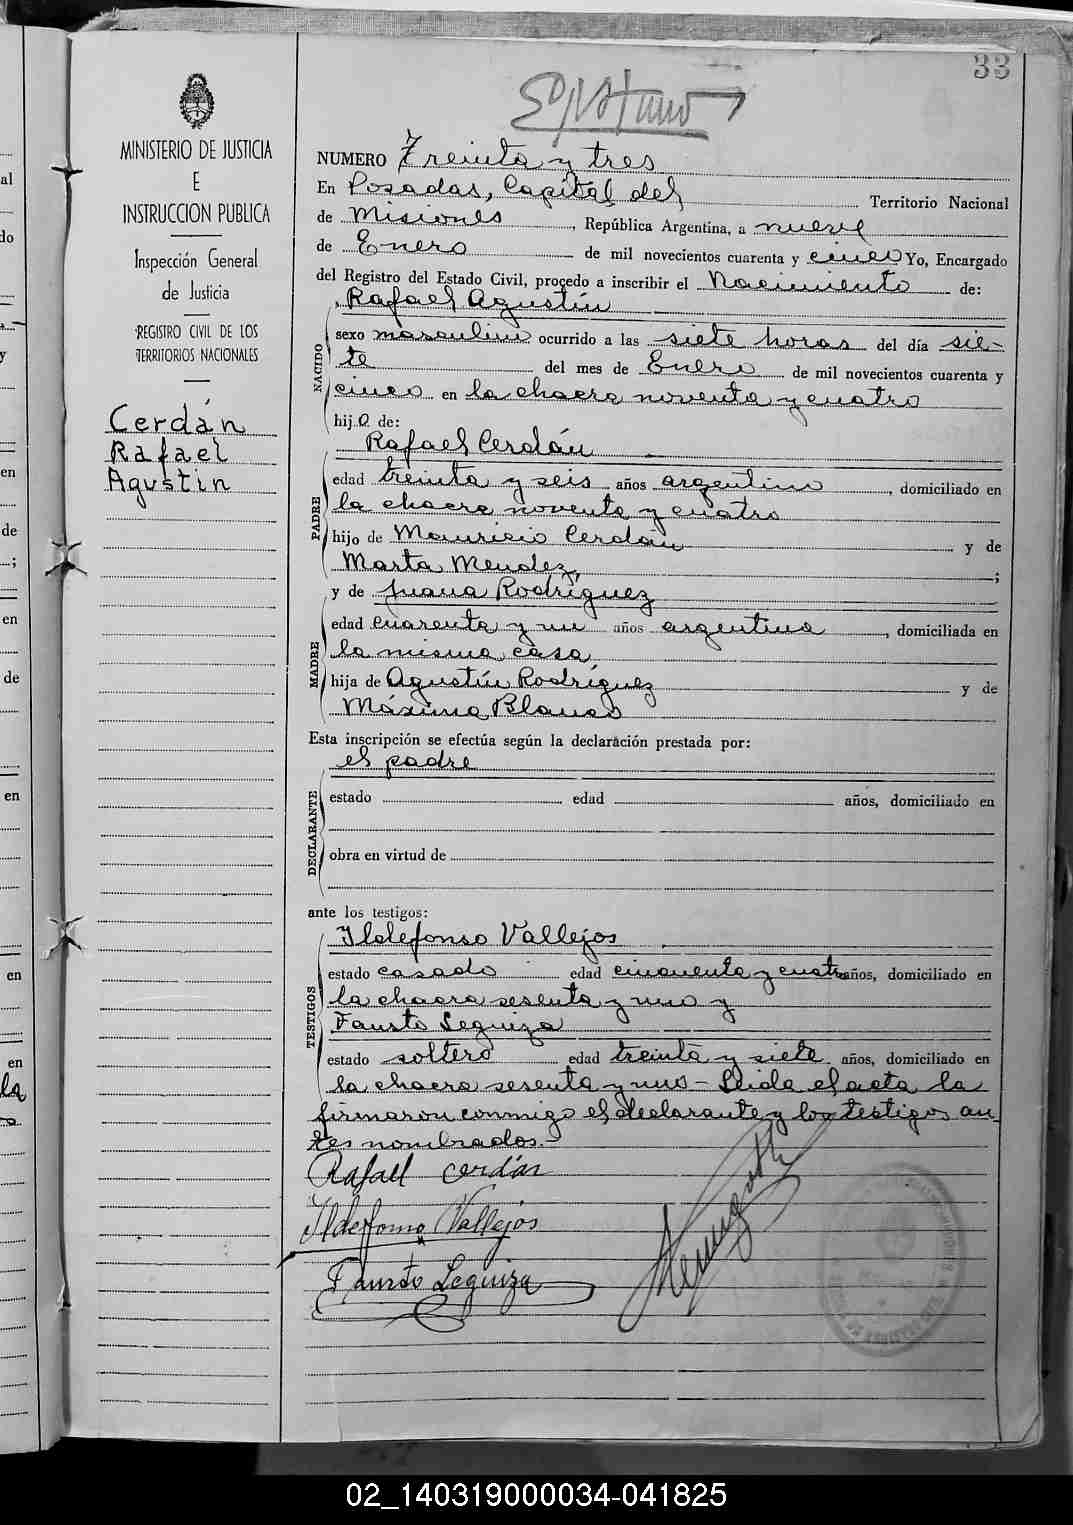 33
MINISTERIO DE JUSTICIA
E
INSTRUCCION PUBLICA
Inspección General
de Justicia
REGISTRO CIVIL DE LOS
TERRITORIOS NACIONALES
Cerdán
Rafael
Agustin
NUMERO Treinta y tres
En Posadas, Capital del Territorio Nacional
de Misiones, República Argentina, a nueve
de Enero de mil novecientos cuarenta y cinco Yo, Encargado
del Registro del Estado Civil, procedo a inscribir el Nacimiento de:
Rafael Agustín
NACIDO
sexo masculino ocurrido a las siete horas del día sie-
te del mes de Enero de mil novecientos cuarenta y
cinco en la chacra noventa y cuatro
hijo de:
Rafael Cerdán
PADRE
edad treinta y seis años argentino, domiciliado en
la chacra noventa y cuatro
hijo de Mauricio Cerdán y de
Marta Mendez, ;
y de Juana Rodríguez
MADRE
edad cuarenta y un años argentina, domiciliada en
la misma casa
hija de Agustín Rodríguez y de
Máxima Blanco
Esta inscripción se efectúa según la declaración prestada por:
el padre
DECLARANTE
estado edad años, domiciliado en
obra en virtud de
ante los testigos:
Ildefonso Vallejos
TESTIGOS
estado casado edad cincuenta y cuatro años, domiciliado en
la chacra sesenta y uno y
Fausto Leguiza
estado soltero edad treinta y siete años, domiciliado en
la chacra sesenta y uno - Leida el acta la
firmaron conmigo el declarante y los testigos an-
tes nombrados.-
Rafael Cerdán
Ildefonso Vallejos
Fausto Leguiza
02_140319000034-041825